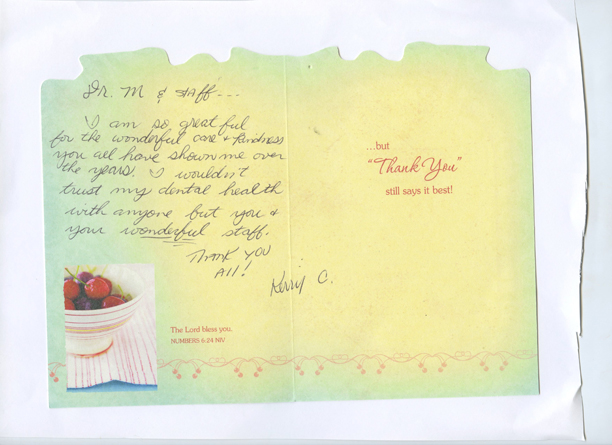 Dr. M & Staff...
I am so greatful
for the wonderful care & kindness
you all have shown me over
the years. I wouldn't
trust my dental health
with anyone but you &
your wonderful staff.
Thank you
All!
Kerry C.
The Lord bless you.
NUMBERS 6:24 NIV
...but
"Thank You"
still says it best!